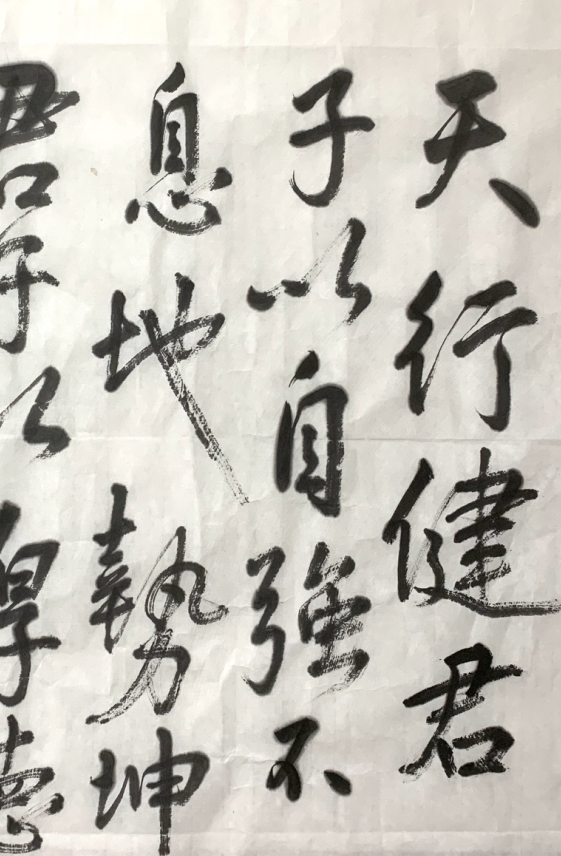 天行健君
子以自強不
息地勢坤
君子以厚德